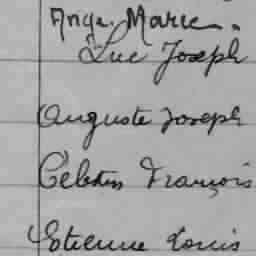 Ange Marie.
Luc Joseph
Auguste Joseph
Célestin François
Etienne Louis